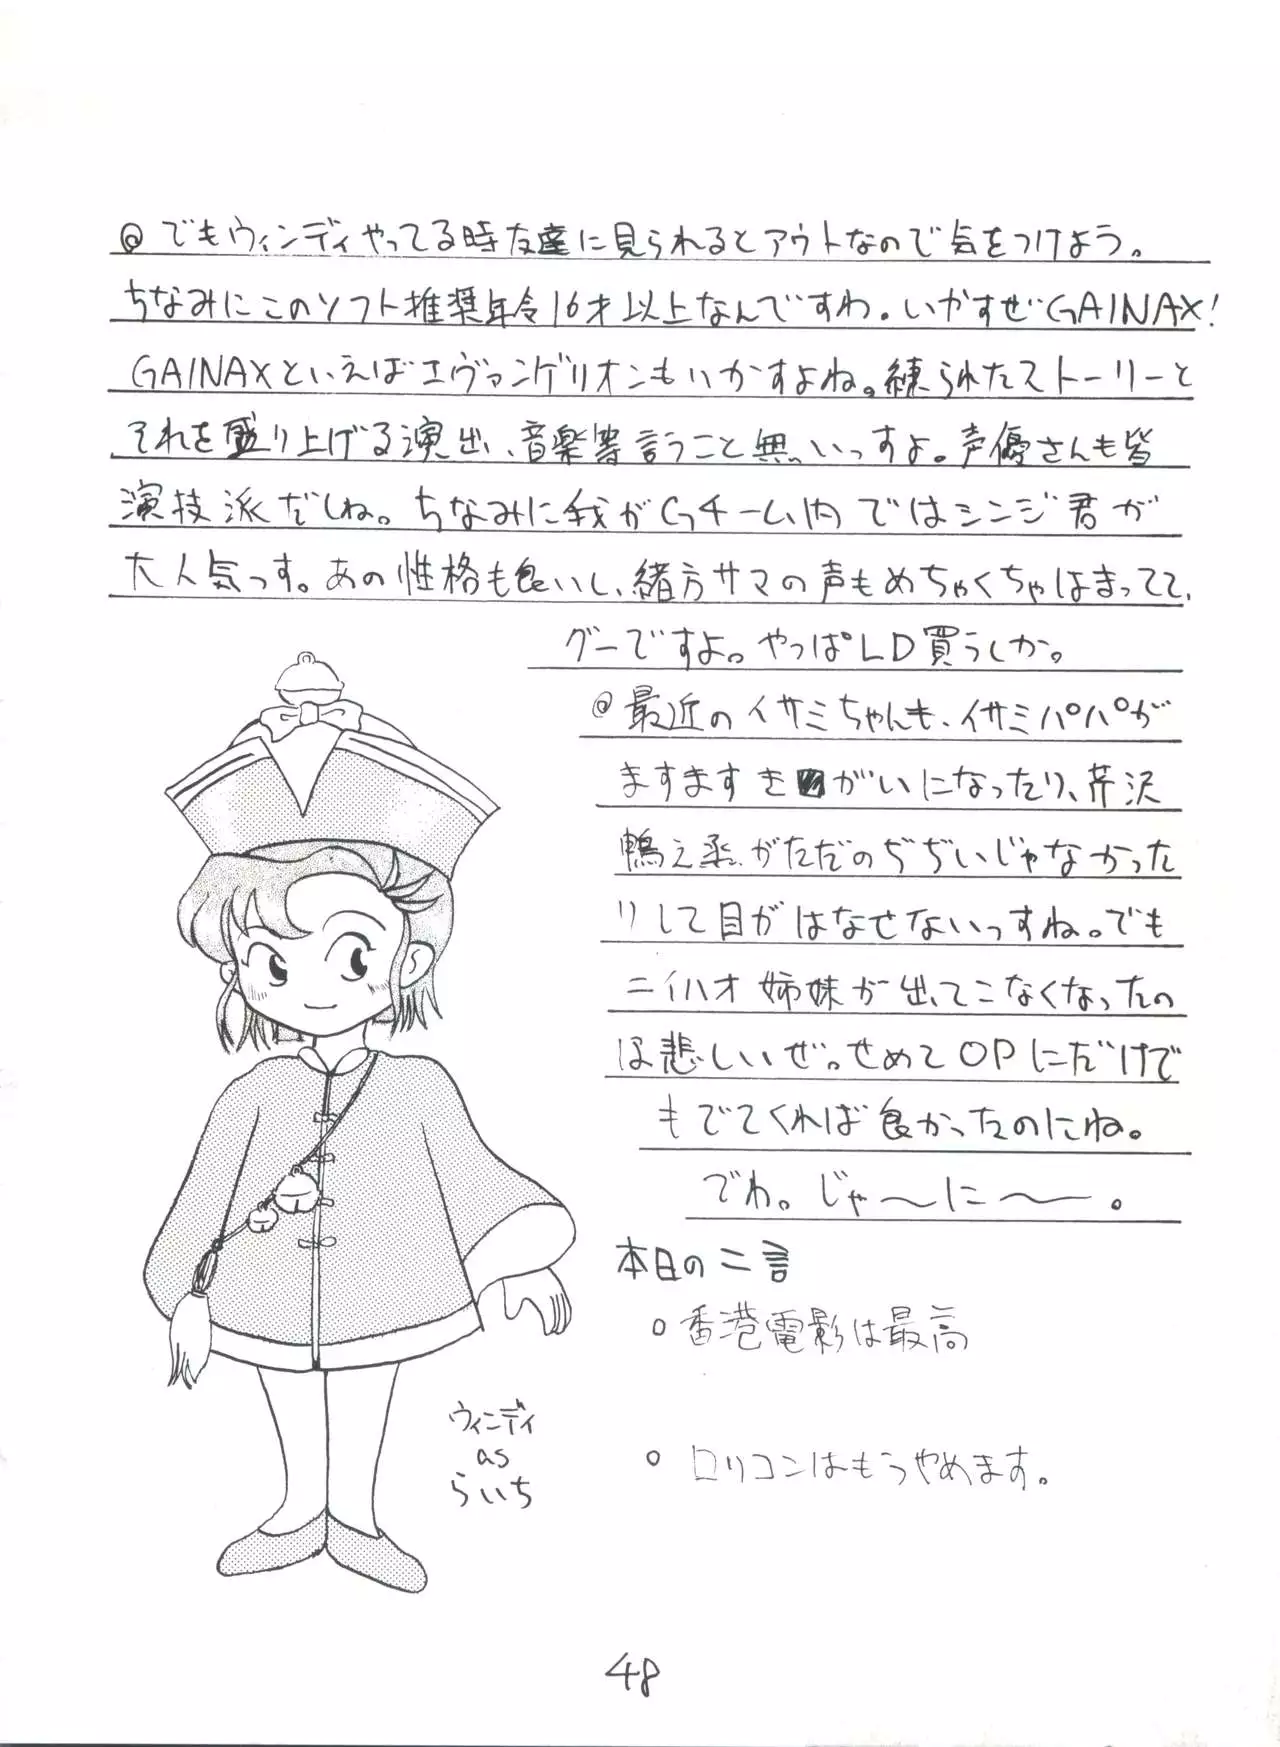 ◎でもウィンディやってる時友達に見られるとアウトなので気をつけよう。
ちなみにこのソフト推奨年令16才以上なんですわ。いかすぜGAINAX!
GAINAXといえばエヴァンゲリオンもいかすよね。練られたストーリーと
それを盛り上げる演出、音楽等言うこと無いっすよ。声優さんも皆
演技派だしね。ちなみに我がGチーム内ではシンジ君が
大人気っす。あの性格も良いし、緒方サマの声もめちゃくちゃはまってて、
グーですよ。やっぱLD買うしか。
◎最近のイサミちゃんも、イサミパパが
ますますきがいになったり、芹沢
鴨之丞がただのぢぢいじゃなかった
りして目がはなせないっすね。でも
ニイハオ姉妹が出てこなくなったの
は悲しいぜ。せめてOPにだけで
もでてくれば良かったのにね。
でわ。じゃ〜に〜。
本日の二言
○香港電影は最高
○ロリコンはもうやめます。
ウィンディ
as
らいち
48